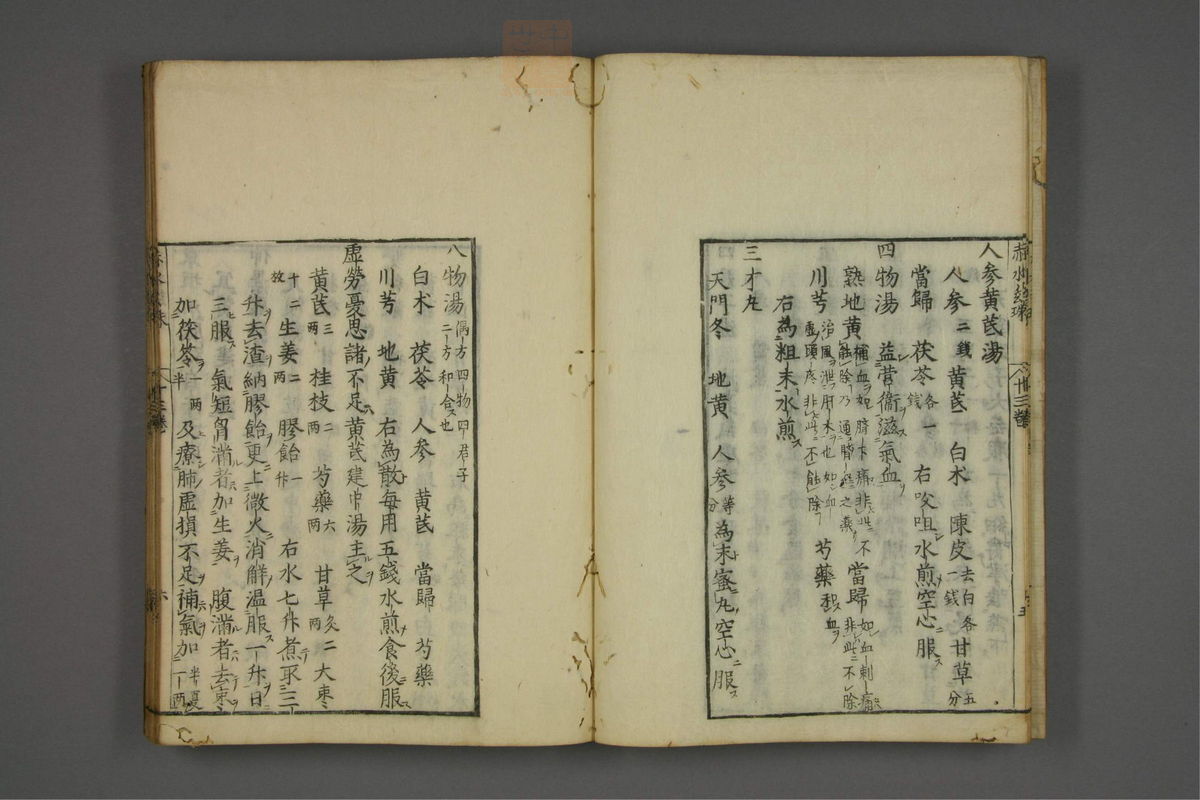 赤水玄珠
卅三卷
五
人參黃芪湯
人參二錢 黃芪 白术 陳皮去白各一錢 甘草五分
當歸 茯苓各一錢 右㕮咀水煎空心服ス
四物湯 益營衞滋氣血
熟地黃補血如臍下痛非此不能除乃通腎經之藥 當歸如血刺痛非此不除
川芎治風泄肝木也如血虛頭疼非此不能除 芍藥和血
右為粗末水煎ス
三才丸
天門冬 地黃 人參等分 為末蜜丸空心服ス
八物湯偶方四物四君子二方和合也
白术 茯苓 人參 黃芪 當歸 芍藥
川芎 地黃 右為散每用五錢水煎食後服ス
虛勞憂思諸不足黃芪建中湯主之
黃芪三兩 桂枝二兩 芍藥六兩 甘草炙二兩 大枣
十二枚 生姜二兩 膠飴一升 右水七升煮取三
升去渣納膠飴更上微火消解温服一升日
三服ス氣短胷滿者加生姜腹滿者去枣
加茯苓一兩半及療肺虛損不足補氣加半夏二兩
赤水玄珠
卅三卷
六